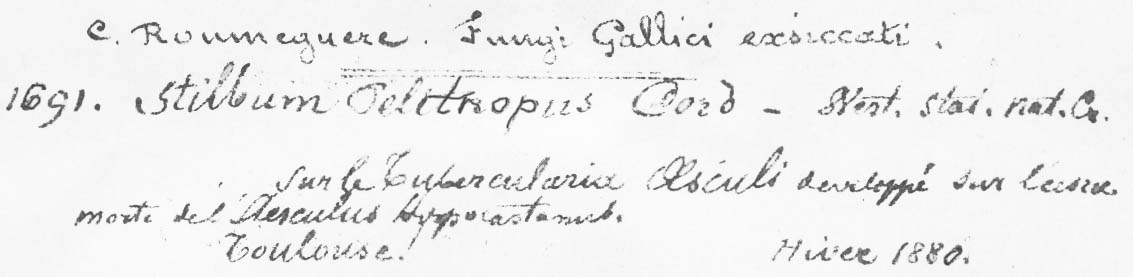 C. Roumeguere. Fungi Gallici exsiccati.
1691. Stilbum Cord – stat. nat. Cr.
sur le Tubercularia Æsculi developpé sur
morte de l'Aesculus Hyppocastanus.
Toulouse. Hiver 1880.